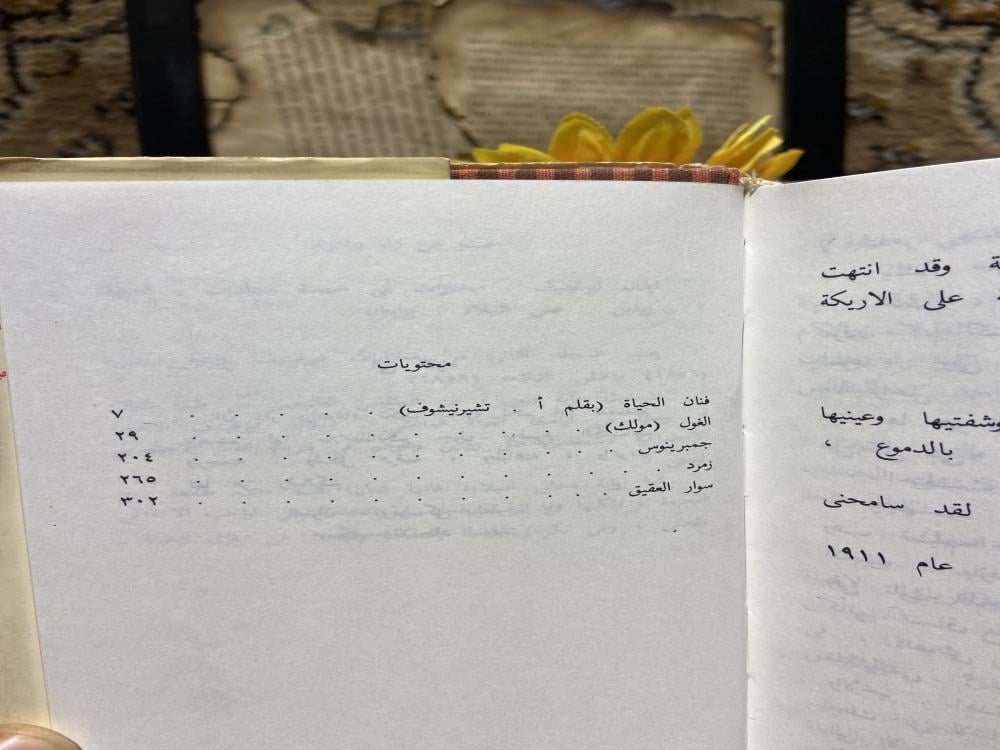 وقد انتهت
على الاريكة
وشفتيها وعينيها
بالدموع ،
لقد سامحنى
عام ١٩١١
محتويات
فنان الحياة (بقلم أ . تشيرنيشوف) . . . . . ٧
الغول (مولك) . . . . . . . . . ٢٩
جمبرينوس . . . . . . . . . ٢٠٤
زمرد . . . . . . . . . . ٢٦٥
سوار العقيق . . . . . . . . . ٣٠٢